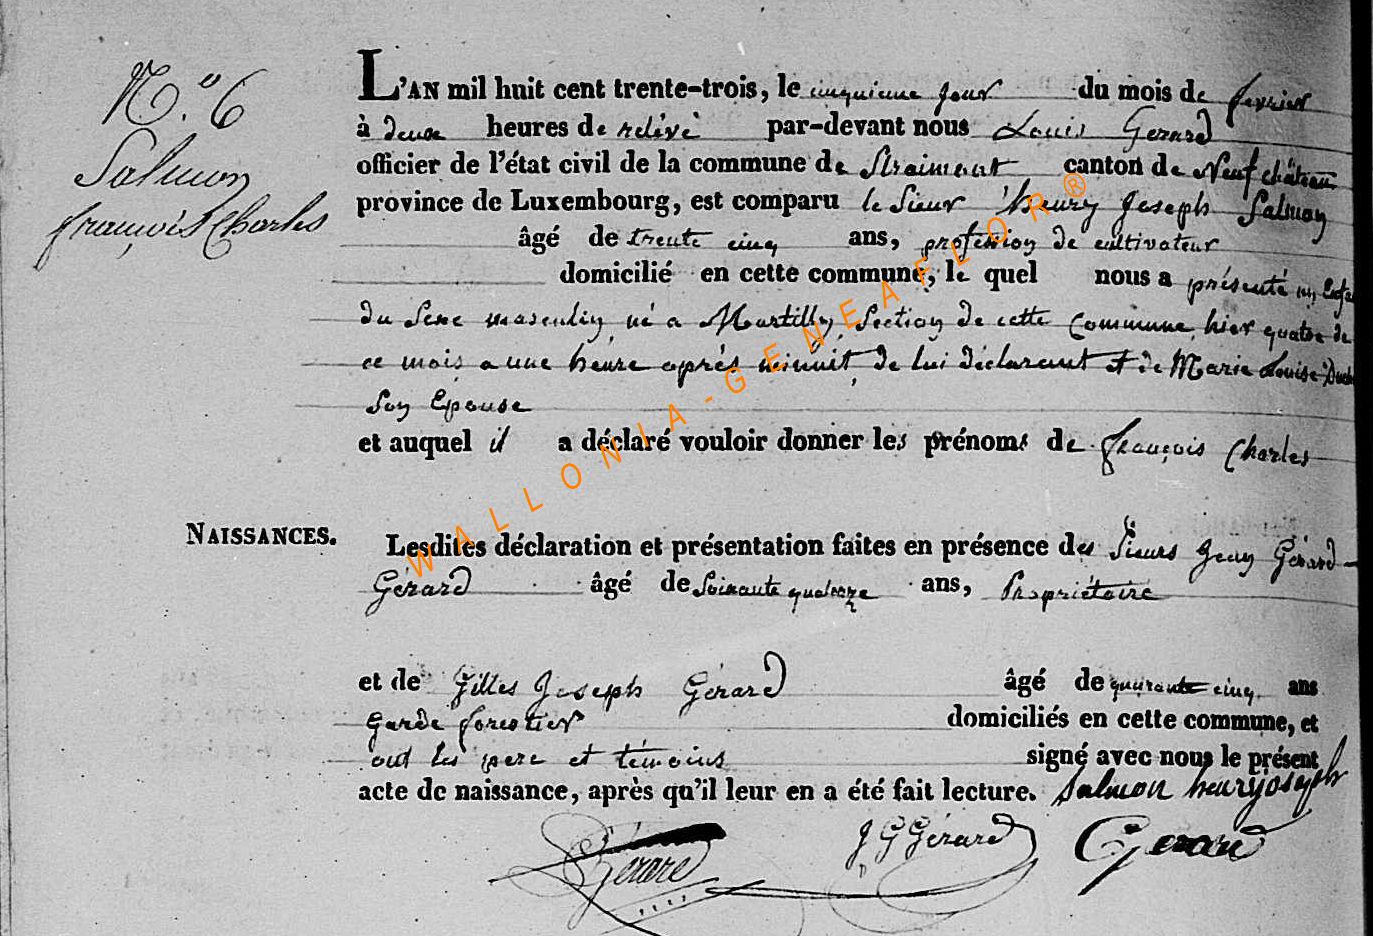 N.º 6
Salmon
françois Charles
L'AN mil huit cent trente-trois, le cinquieme jour du mois de fevrier
à deux heures de relévé par-devant nous Louis Gerard
officier de l'état civil de la commune de Straimont canton de Neufchâteau
province de Luxembourg, est comparu le Sieur henry Joseph Salmon
âgé de trente cinq ans, profession de cultivateur
domicilié en cette commune, le quel nous a présenté un Enfant
du Sexe masculin né a Martilly Section de cette Commune hier quatre de
ce mois a une heure après minuit de lui déclarant et de Marie Louise
Son Epouse
et auquel il a déclaré vouloir donner les prénoms de françois Charles
NAISSANCES.
Lesdites déclaration et présentation faites en présence des Sieurs Jean Gérard-
Gérard âgé de Soixante quatorze ans, Propriétaire
et de Gilles Joseph Gérard âgé de quarante cinq ans
Garde forestier domiciliés en cette commune, et
ont les pere et témoins signé avec nous le présent
acte de naissance, après qu'il leur en a été fait lecture. Salmon henryjoseph
Gérard J G Gérard Gerard
WALLONIA-GENEAFLOR®